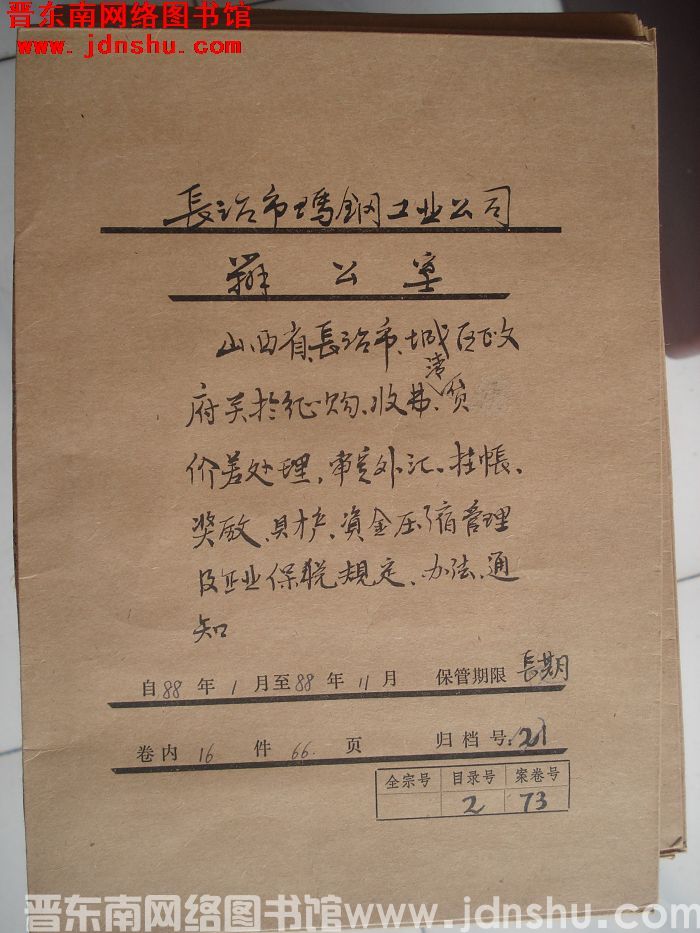 晋东南网络图书馆
www.jdnshu.com
長治市瑪钢工业公司
辦公室
山西省、長治市、城区政
府关於征购、收费、清贷
价差处理,审定外汇、挂帳、
奖励、具产、资金压缩管理
及企业保税规定、办法、通
知
自88年1月至88年11月 保管期限 長期
卷内16件66页 归档号:21
全宗号 目录号 案卷号
2 73
晋东南网络图书馆www.jdnshu.com